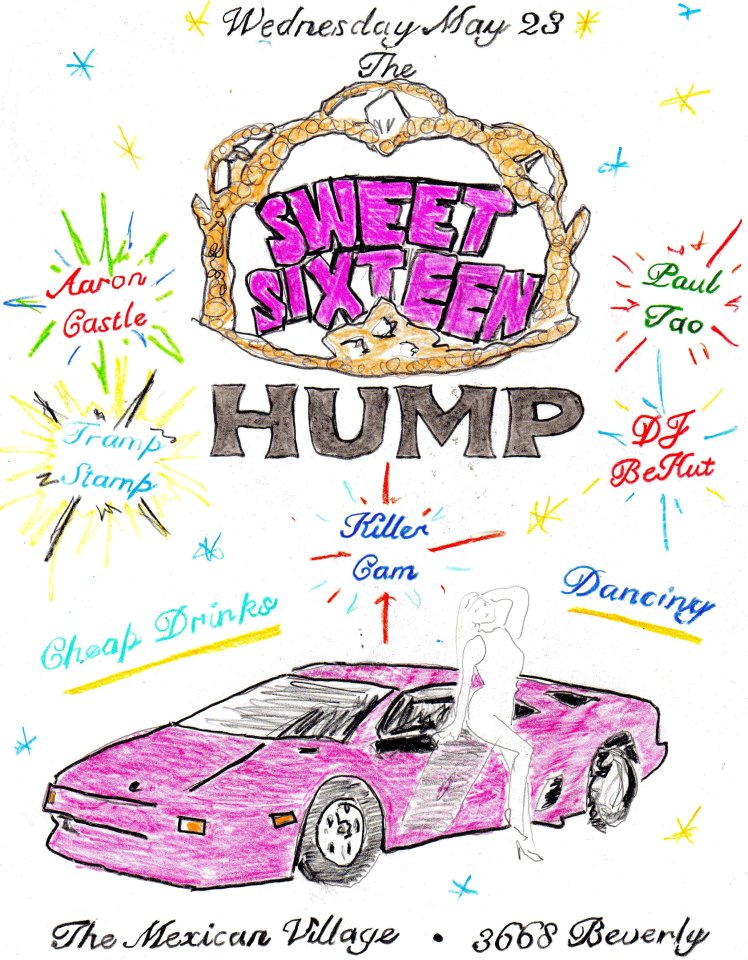 Wednesday May 23
The
SWEET
SIXTEEN
HUMP
Aaron
Castle
Paul
Tao
Tramp
Stamp
DJ
BeHut
Killer
Cam
Cheap Drinks
Dancing
The Mexican Village • 3668 Beverly